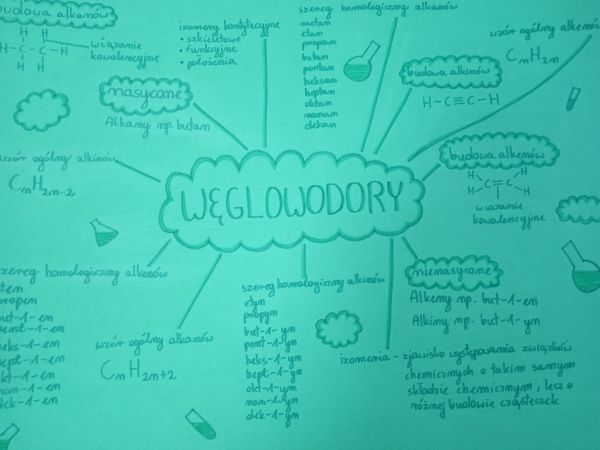 budowa alkanów
H H
H-C-C-H
H H
wiązanie
kowalencyjne
izomery konstytucyjne
• szkieletowe
• funkcyjne
• położenia
szereg homologiczny alkanów
metan
etan
propan
butan
pentan
heksan
heptan
oktan
nonan
dekan
wzór ogólny alkenów
CnH2n
nasycone
Alkany np. butan
budowa alkinów
H-C≡C-H
wzór ogólny alkinów
CnH2n-2
WĘGLOWODORY
budowa alkenów
H H
C=C
H H
wiązanie
kowalencyjne
szereg homologiczny alkenów
eten
propen
but-1-en
pent-1-en
heks-1-en
hept-1-en
okt-1-en
non-1-en
dek-1-en
wzór ogólny alkanów
CnH2n+2
szereg homologiczny alkinów
etyn
propyn
but-1-yn
pent-1-yn
heks-1-yn
hept-1-yn
okt-1-yn
non-1-yn
dek-1-yn
nienasycone
Alkeny np. but-1-en
Alkiny np. but-1-yn
izomeria - zjawisko występowania związków
chemicznych o takim samym
składzie chemicznym, lecz o
różnej budowie cząsteczek